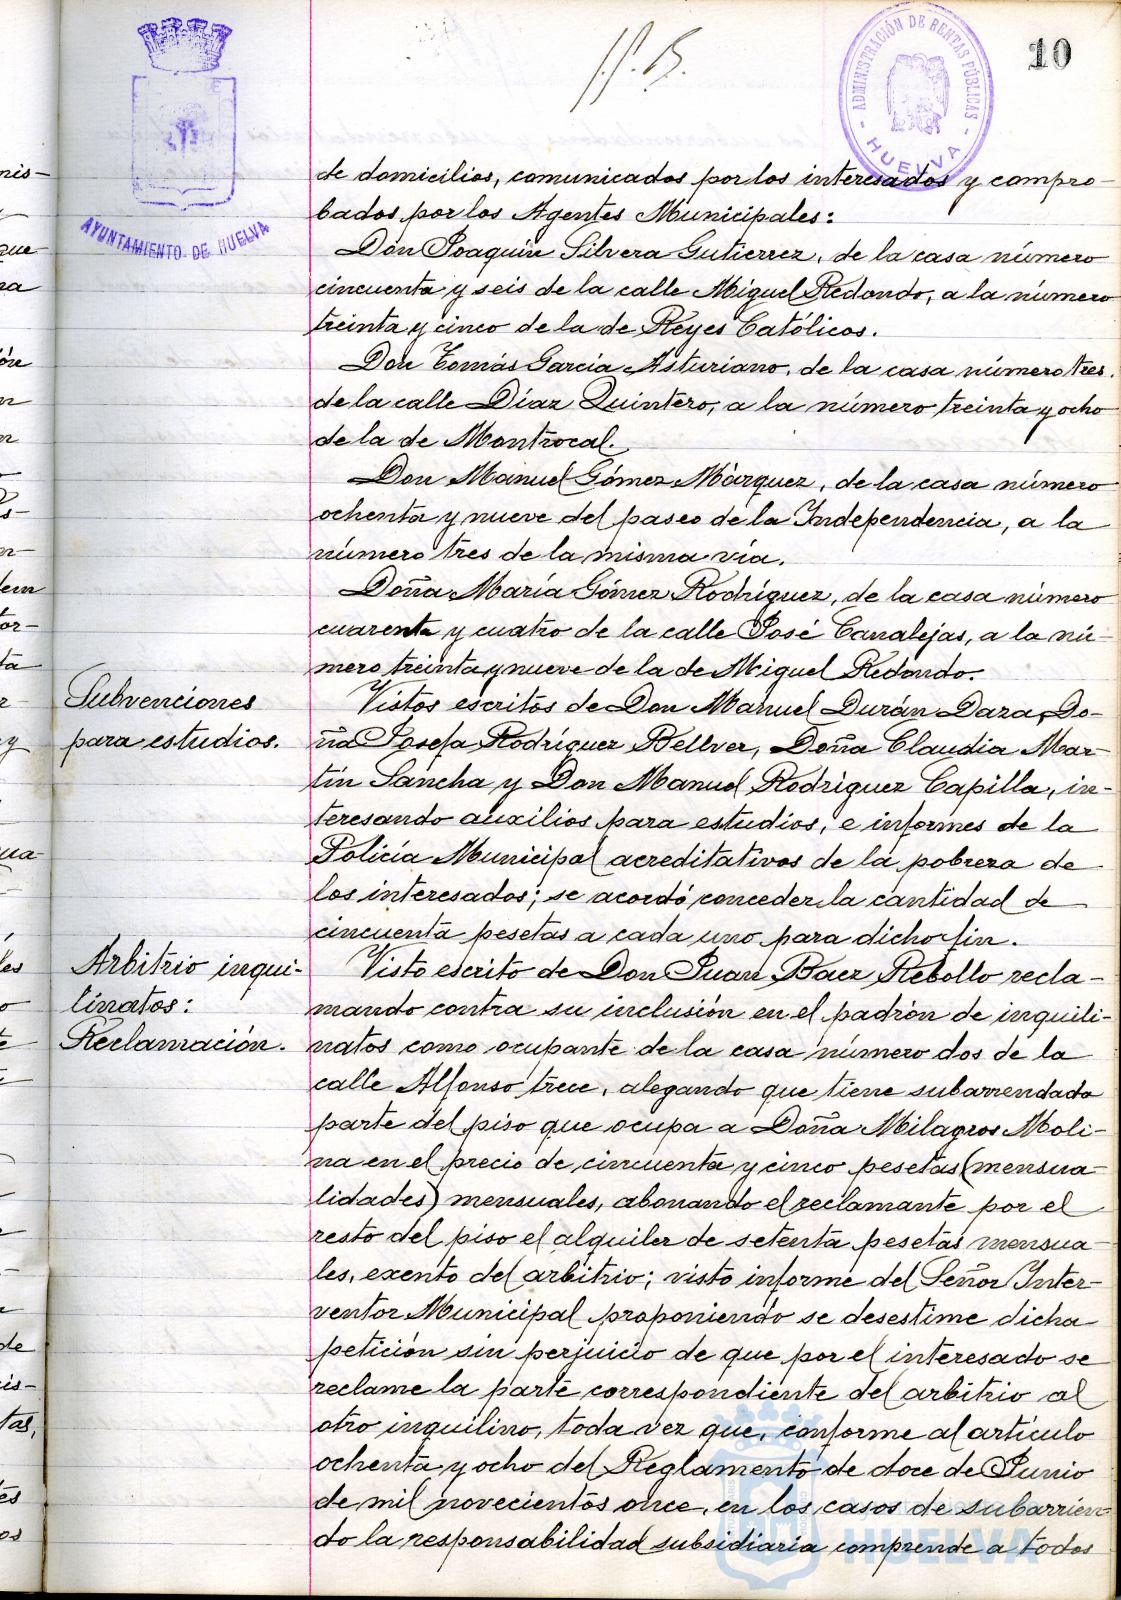 10
ADMINISTRACIÓN DE RENTAS PÚBLICAS
HUELVA
AYUNTAMIENTO DE HUELVA
de domicilios, comunicados por los interesados y compro-
bados por los Agentes Municipales:
Don Joaquín Silvera Gutierrez, de la casa número
cincuenta y seis de la calle Miguel Redondo, a la número
treinta y cinco de la de Reyes Católicos.
Don Tomás García Asturiano, de la casa número tres.
de la calle Díaz Quintero, a la número treinta y ocho
de la de Montrocal.
Don Manuel Gómez Márquez, de la casa número
ochenta y nueve del paseo de la Independencia, a la
número tres de la misma vía.
Doña María Gómez Rodríguez, de la casa número
cuarenta y cuatro de la calle José Canalejas, a la nú-
mero treinta y nueve de la de Miguel Redondo.
Subvenciones
para estudios.
Vistos escritos de Don Manuel Durán Daza, Do-
ña Josefa Rodríguez Bellver, Doña Claudia Mar-
tín Sancha y Don Manuel Rodríguez Capilla, in-
teresando auxilios para estudios, e informes de la
Policía Municipal acreditativos de la pobreza de
los interesados; se acordó conceder la cantidad de
cincuenta pesetas a cada uno para dicho fin.
Arbitrio inqui-
linatos:
Reclamación.
Visto escrito de Don Juan Baez Rebollo recla-
mando contra su inclusión en el padrón de inquili-
natos como ocupante de la casa número dos de la
calle Alfonso trece, alegando que tiene subarrendada
parte del piso que ocupa a Doña Milagros Moli-
na en el precio de cincuenta y cinco pesetas (mensua-
lidades) mensuales, abonando el reclamante por el
resto del piso el alquiler de setenta pesetas mensua-
les, exento del arbitrio; visto informe del Señor Inter-
ventor Municipal proponiendo se desestime dicha
petición sin perjuicio de que por el interesado se
reclame la parte correspondiente del arbitrio al
otro inquilino, toda vez que, conforme al artículo
ochenta y ocho del Reglamento de doce de Junio
de mil novecientos once, en los casos de subarrien-
do la responsabilidad subsidiaria comprende a todos
HUELVA